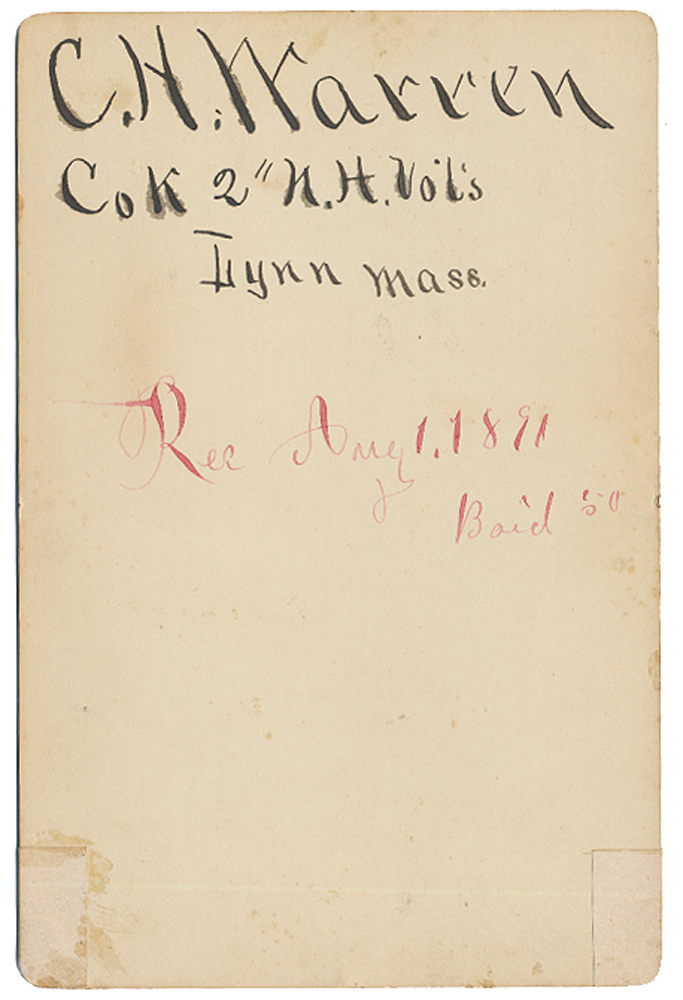 C.H. Warren
Co K 2" N.H. Vol's
Lynn Mass.
Rec Aug 1. 1891
Baid 50